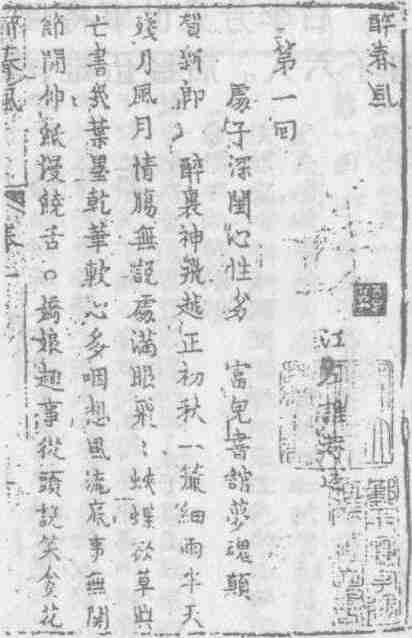 醉春風
江左誰菴述
第一回
處子深閨心性劣　富兒書館夢魂顛
賀新郎　醉裏神飛越正初秋一簾細雨半天
殘月風月情腸無説處滿眼飛飛蛺蝶於草典
亡書幾葉墨乾筆軟心多咽想風流底事無關
節閒仰紙慢饒舌○嬌娘趣事從頭説笑貪花
醉春風　卷一